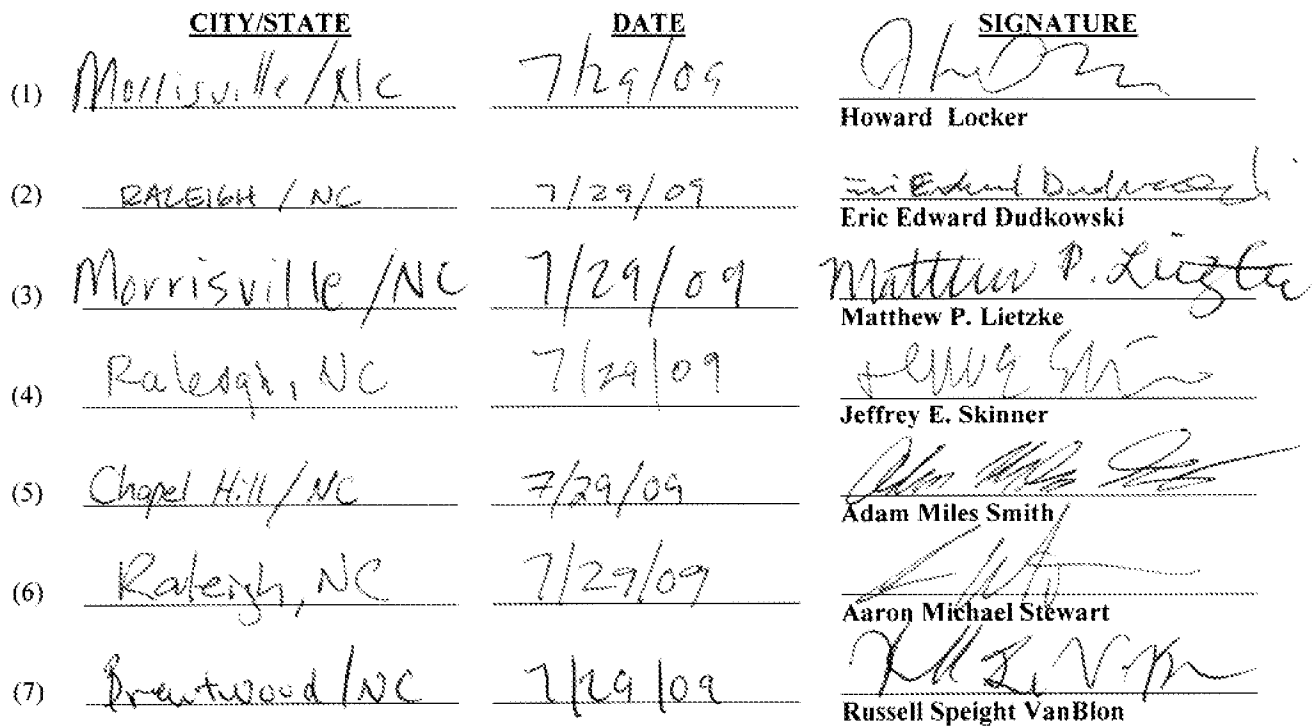 CITY/STATE DATE SIGNATURE
(1) Morrisville/NC 7/29/09
Howard Locker
(2) RALEIGH / NC 7/29/09 Eric Edward Dudkowski
Eric Edward Dudkowski
(3) Morrisville/NC 7/29/09 Matthew P. Lietzke
Matthew P. Lietzke
(4) Raleigh, NC 7/29/09
Jeffrey E. Skinner
(5) Chapel Hill/NC 7/29/09
Adam Miles Smith
(6) Raleigh, NC 7/29/09
Aaron Michael Stewart
(7) Brentwood/NC 7/29/09
Russell Speight VanBlon